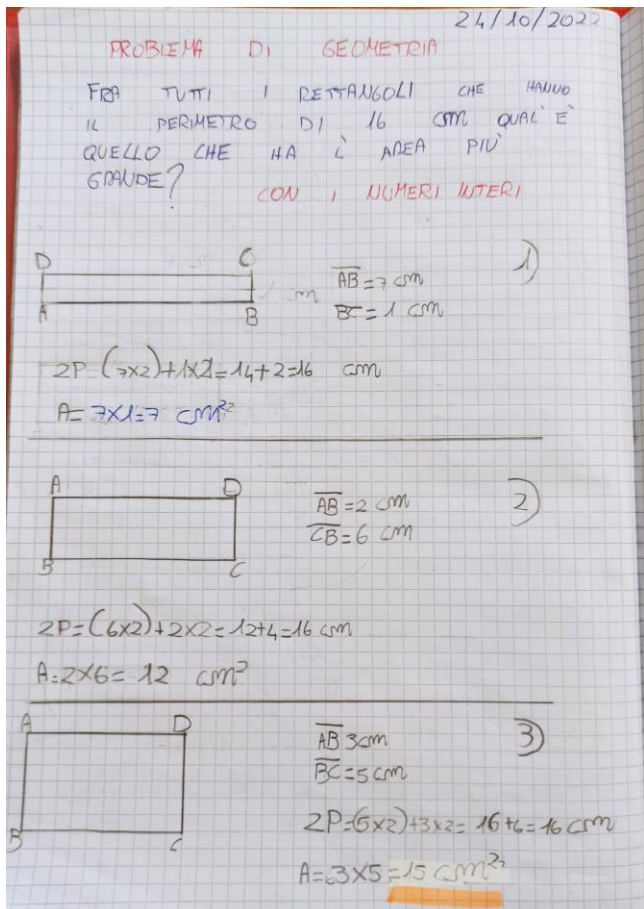 24/10/2022
PROBLEMA DI GEOMETRIA
FRA TUTTI I RETTANGOLI CHE HANNO
IL PERIMETRO DI 16 CM QUAL'È
QUELLO CHE HA L'AREA PIÙ
GRANDE?
CON I NUMERI INTERI
1)
D C
A B
AB=7 cm
BC=1 cm
2P=(7x2)+1x2=14+2=16 cm
A=7x1=7 cm²
2)
A D
B C
AB=2 cm
CB=6 cm
2P=(6x2)+2x2=12+4=16 cm
A=2x6=12 cm²
3)
A D
B C
AB 3cm
BC=5cm
2P=(5x2)+3x2=16+6=16 cm
A=3x5=15 cm²